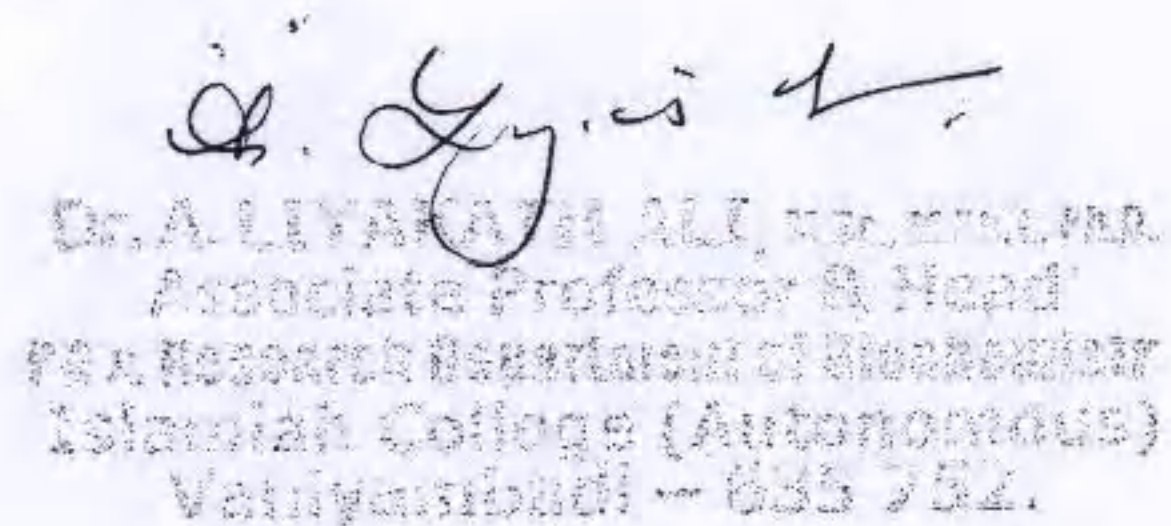 Dr. A. LIYAKATH ALI, M.Sc., M.Phil., PH.D.
Associate Professor & Head
PG & Research Department of Biochemistry
Islamiah College (Autonomous)
Vaniyambadi - 635 752.